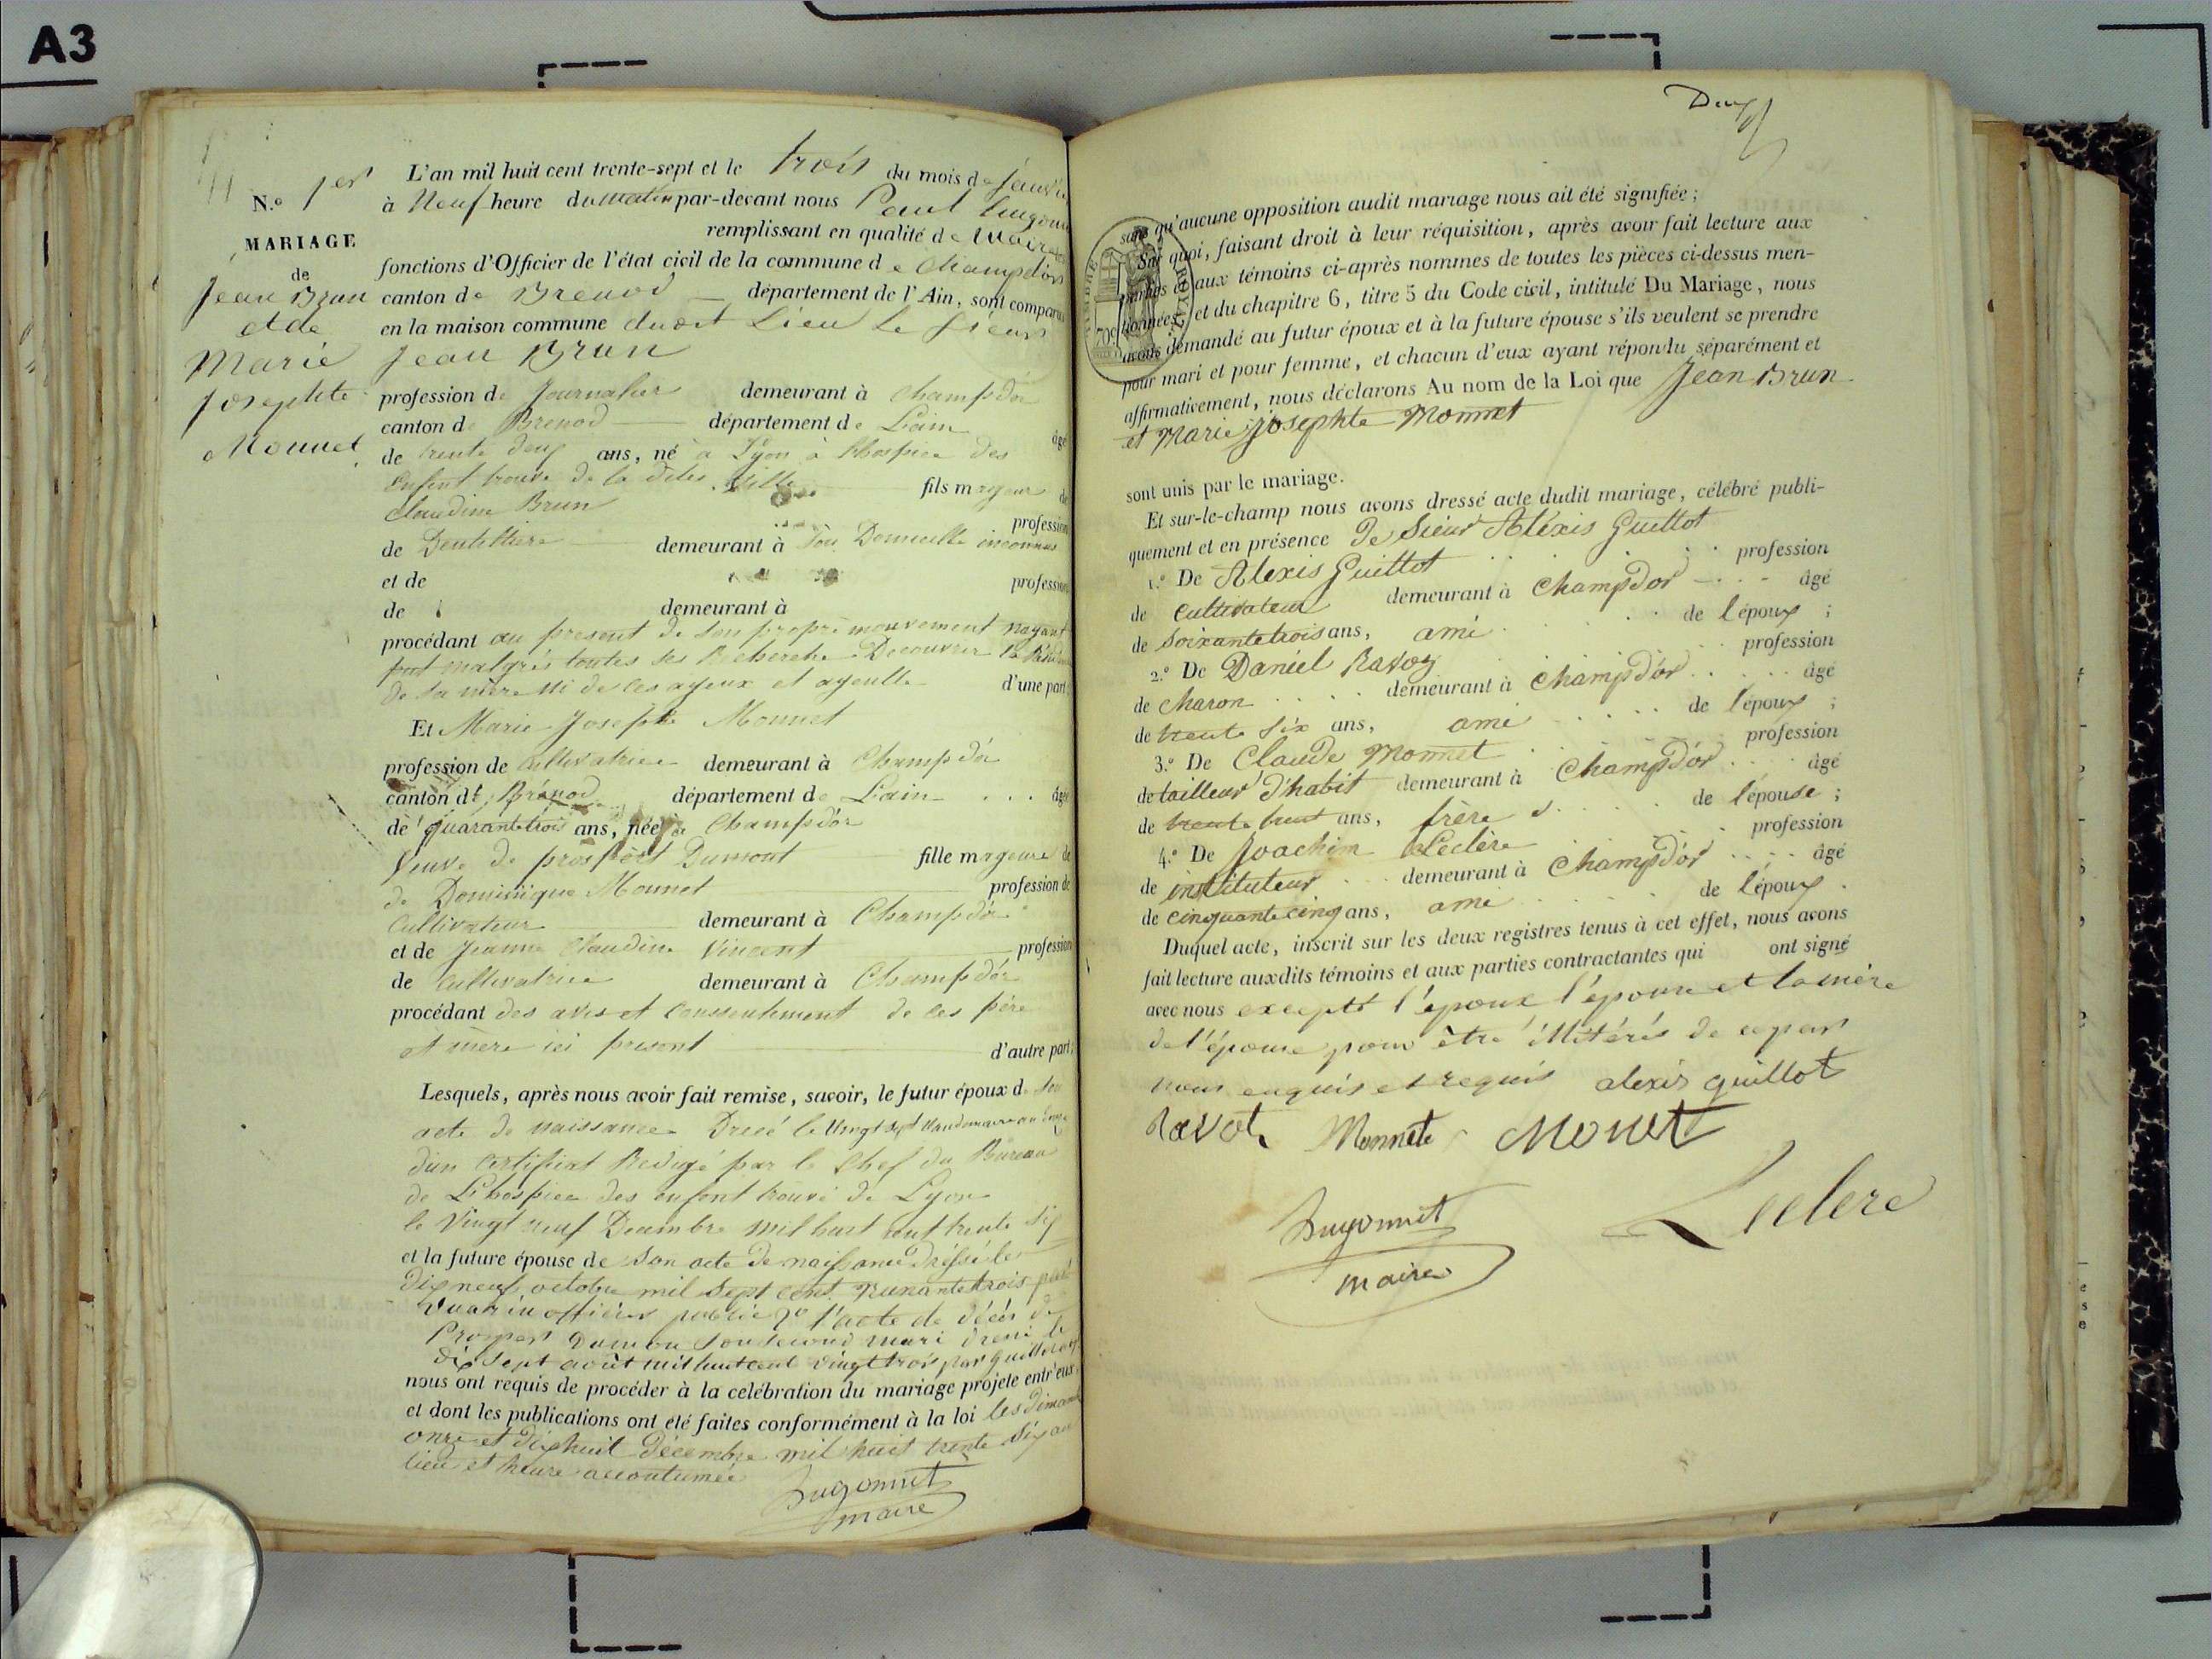 A3
N.o 1er
MARIAGE
de
Jean Brun
et de
Marie
Josephte
Monnet
L'an mil huit cent trente-sept et le trois du mois de janvier
à Neuf heure du matin par-devant nous Paul
remplissant en qualité de Maire
fonctions d'Officier de l'état civil de la commune de Champdor
canton de Brenod département de l'Ain, sont comparus
en la maison commune dudit Lieu le sieur
Jean Brun
profession de Journalier demeurant à Champdor
canton de Brenod département de Lain âgé
de trente deux ans, né à Lyon à Lhospice des
enfent trouvé de la dites ville fils majeur de
Claudine Brun
profession
de Dentellière demeurant à son Domicille inconnus
et de profession
de demeurant à
procédant au présent de son propre mouvement nayant
put malgrés toutes ses Recherche Découvrir
de sa mère ni de ces ayeux et ayeulle d'une part;
Et Marie Josephte Monnet
profession de cultivatrice demeurant à Champdor
canton de Brénod département de Lain âgée
de quarante trois ans, née à Champdor
Veuve de prospert Dumont fille mageure de
de Dominique Monnet profession de
Cultivateur demeurant à Champdor
et de Jeanne Claudine Vincent profession
de cultivatrice demeurant à Champdor
procédant des avis et conssentement de ces père
et mère ici present d'autre part;
Lesquels, après nous avoir fait remise, savoir, le futur époux de son
acte de naissance Dressé le vingt sept
d'un certificat Redigé par le Chef du Bureau
de Lhospice des enfent trouvé de Lyon
le vingt neuf Décembre mil huit cent trente six
et la future épouse de son acte de naissance dréssé le
dix neuf octobre mil sept cent nonante trois par
officier public 2o l'acte de décès de
Prosper Dumon son second mari dressé le
dix sept août mil huit cent vingt trois par Guillot
nous ont requis de procéder à la celébration du mariage projeté entr'eux,
et dont les publications ont été faites conformément à la loi les dimanche
onze et dix huit Décembre mil huit trente six au
lieu et heure accoutumée
Hugonnet
maire
Deux
sans qu'aucune opposition audit mariage nous ait été signifiée;
Sur quoi, faisant droit à leur réquisition, après avoir fait lecture aux
parties et aux témoins ci-après nommés de toutes les pièces ci-dessus men-
tionnées, et du chapitre 6, titre 5 du Code civil, intitulé Du Mariage, nous
avons demandé au futur époux et à la future épouse s'ils veulent se prendre
pour mari et pour femme, et chacun d'eux ayant répondu séparément et
affirmativement, nous déclarons Au nom de la Loi que Jean Brun
et Marie josephte Monnet
sont unis par le mariage.
Et sur-le-champ nous avons dressé acte dudit mariage, célébré publi-
quement et en présence de Sieur Aléxis Guillot
1.o De Alexis Guillot profession
de cultivateur demeurant à Champdor âgé
de soixante trois ans, ami de l'époux;
2.o De Daniel Ravoz profession
de charon demeurant à Champdor âgé
de trente six ans, ami de l'époux;
3.o De Claude Monnet profession
de tailleur d'habit demeurant à Champdor âgé
de trente huit ans, frère de l'épouse;
4.o De Joachim Leclère profession
de instituteur demeurant à Champdor âgé
de cinquante cinq ans, ami de l'époux.
Duquel acte, inscrit sur les deux registres tenus à cet effet, nous avons
fait lecture auxdits témoins et aux parties contractantes qui ont signé
avec nous excepté l'époux l'épouse et la mère
de l'épouse pour être illitérés de ce par
nous enquis et requis alexis guillot
Ravot Monnete Monet
Hugonnet Leclere
maire